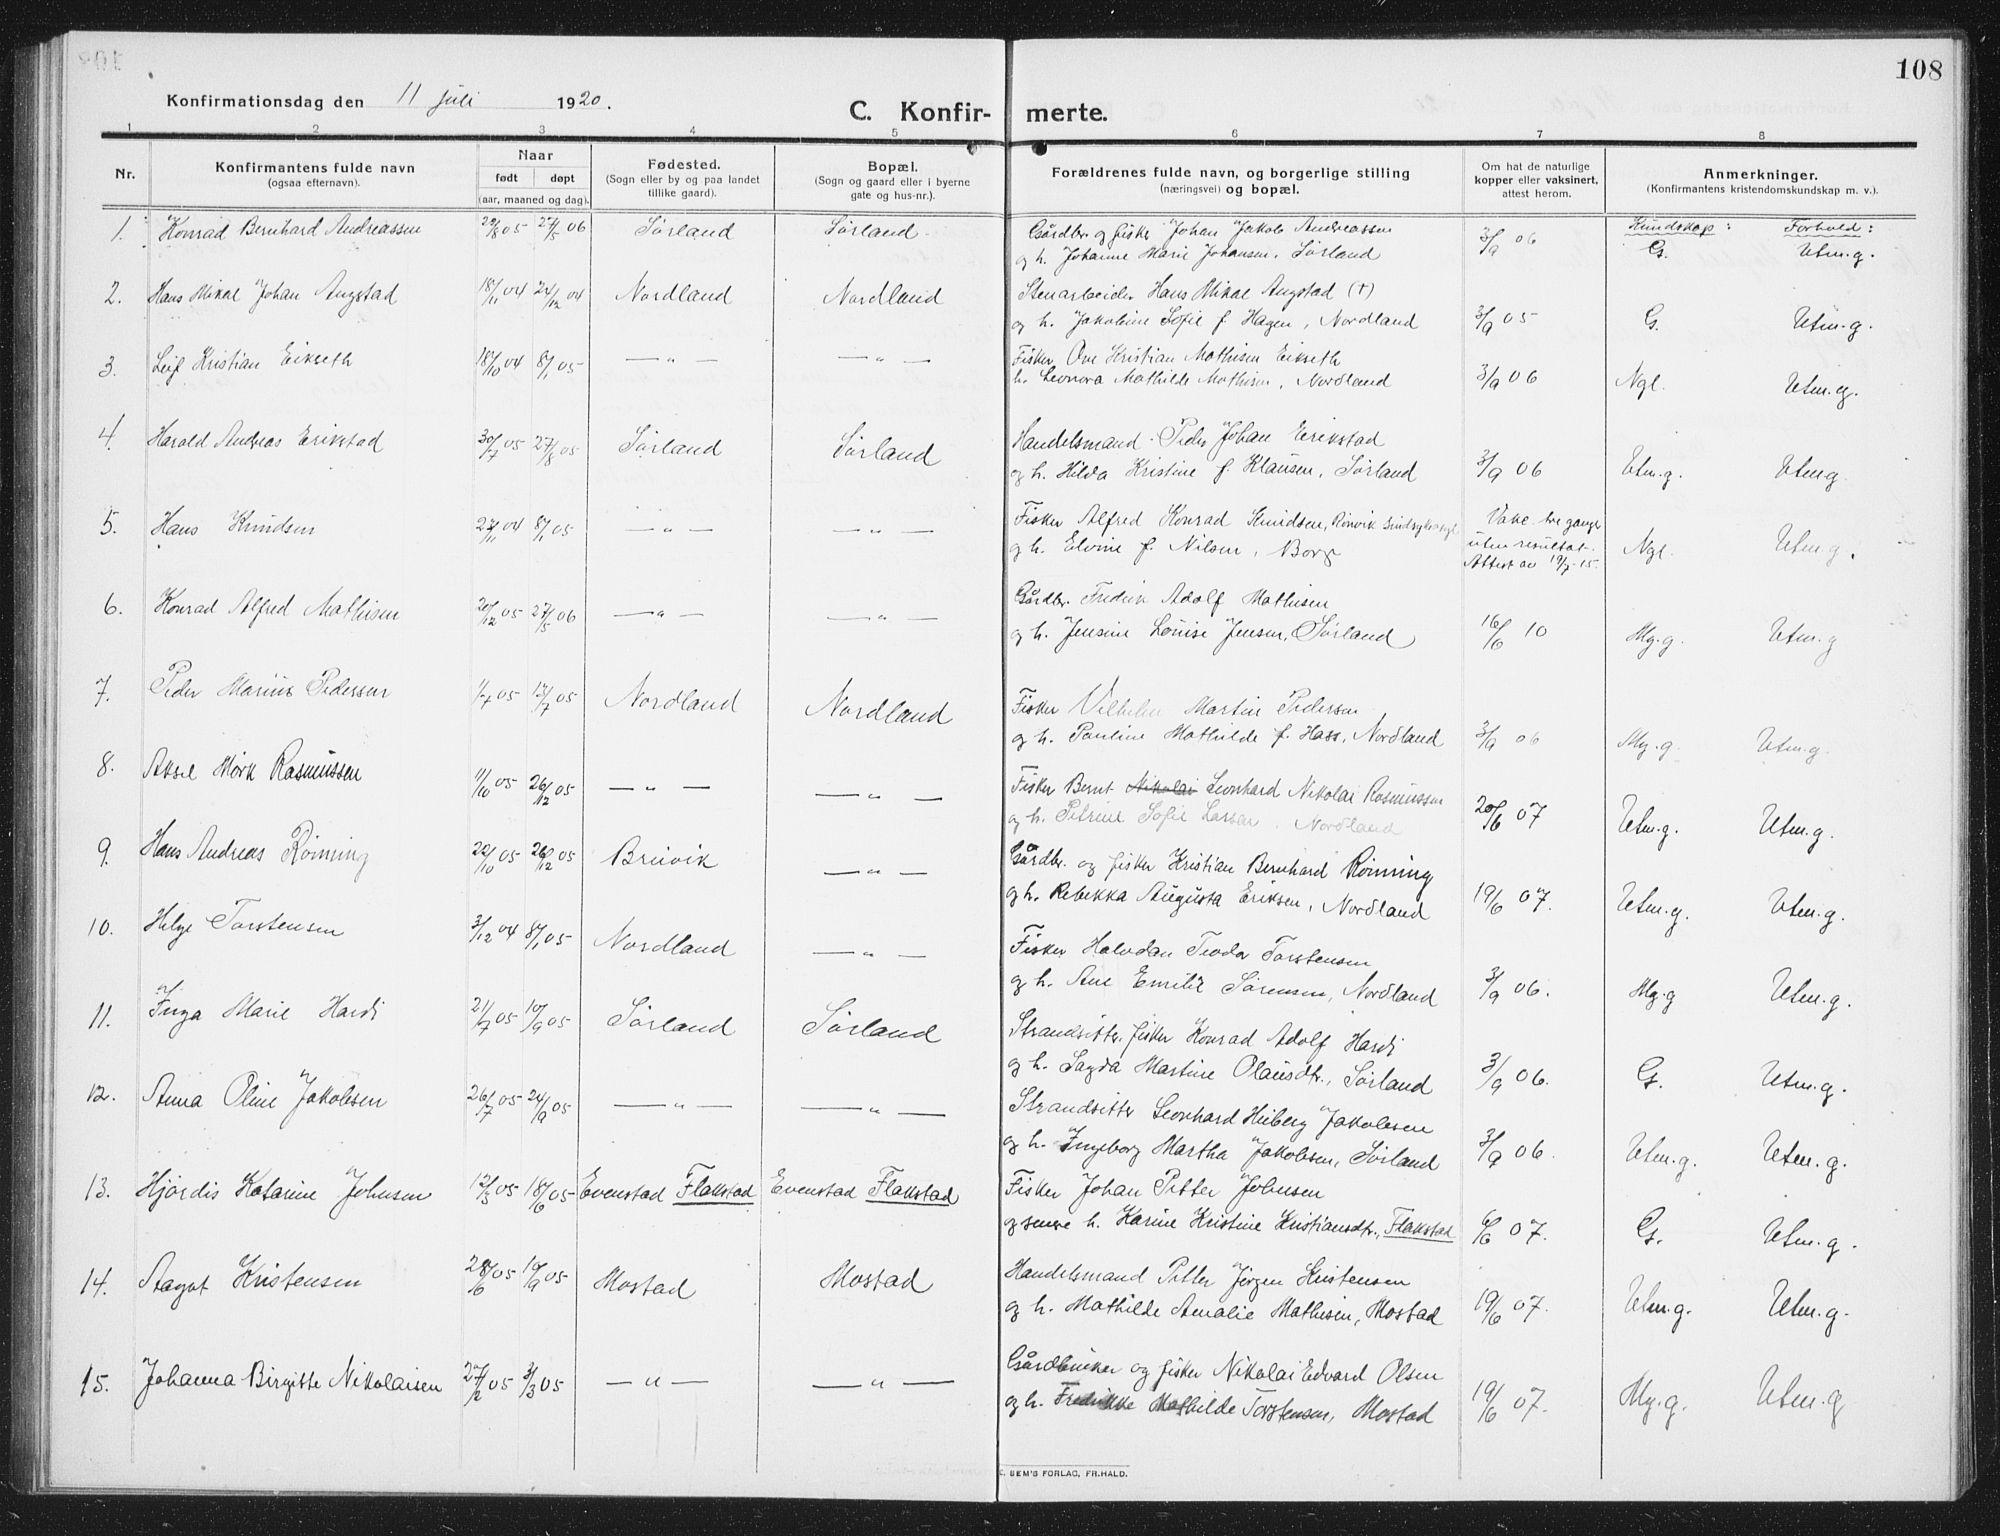 108
Konfirmationsdag den 11 juli 1920.
C. Konfir- merte.
1 2 3 4 5 6 7 8
Nr.
Konfirmantens fulde navn
(ogsaa efternavn).
Naar
født døpt
(aar, maaned og dag).
Fødested.
(Sogn eller by og paa landet
tillike gaard).
Bopæl.
(Sogn og gaard eller i byerne
gate og hus-nr.).
Forældrenes fulde navn, og borgerlige stilling
(næringsvei) og bopæl.
Om hat de naturlige
kopper eller vaksinert,
attest herom.
Anmerkninger.
(Konfirmantens kristendomskundskap m. v.).
Kundskap: Forhold:
1. Konrad Bernhard Andreassen 29/8 05 27/5 06 Sörland Sörland Gårdbr. og fisker Johan Jakob Andreassen
og h. Johanne Marie Johansen, Sörland 3/9 06 G. Utm.g.
2. Hans Mikal Johan Angstad 18/11 04 24/12 04 Nordland Nordland Stenarbeider Hans Mikal Angstad (†)
og h. Jakobine Sofie f. Hagen, Nordland 3/9 05 G. Utm.g.
3. Leif Kristian Eikseth 18/10 04 8/1 05 — " — — " — Fisker Ove Kristian Mathisen Eikseth
h. Leonora Mathilde Mathisen, Nordland 3/9 06 Ngl. Utm.g.
4. Harald Andreas Erikstad 30/7 05 27/8 05 Sörland Sörland Handelsmand Peder Johan Erikstad
og h. Hilda Kristine f. Klausen, Sörland 3/9 06 Utm.g. Utm.g
5. Hans Knudsen 27/11 04 8/1 05 — " — — " — Fisker Alfred Konrad Knudsen, Rönvik
og h. Elvine f. Nilsen, Borge Vakc. tre ganger
uten resultat.
Attest av 19/7-15. Ngl. Utm.g.
6. Konrad Alfred Mathisen 20/12 05 27/5 06 — " — — " — Gårdbr. Fredrik Adolf Mathisen
og h. Jensine Louise Jensen, Sörland 16/6 10 Mg.g. Utm.g
7. Peder Marius Pedersen 1/7 05 13/7 05 Nordland Nordland Fisker Vilhelm Martin Pedersen
og h. Pauline Mathilde f. Hass, Nordland 3/9 06 Mg.g. Utm.g.
8. Aksel Mörk Rasmussen 11/10 05 26/12 05 — " — — " — Fisker Bernt Nikolai Leonhard Nikolai Rasmussen
og h. Petrine Sofie Larsen, Nordland 20/6 07 Utm.g. Utm.g.
9. Hans Andreas Rönning 22/10 05 26/12 05 Bruvik — " — Gårdbr. og fisker Kristian Bernhard Rönning
og h. Rebekka Augusta Eriksen, Nordland 19/6 07. Utm.g. Utm.g.
10. Helge Torstensen 3/12 04 8/1 05 Nordland — " — Fisker Halvdan Teodor Torstensen
og h. Ane Emilie Sörensen, Nordland 3/9 06. Mg.g Utm.g.
11. Inga Marie Hardi 21/7 05 10/9 05 Sörland Sörland Strandsitter, fisker Konrad Adolf Hardi
og h. Sagda Martine Olausdtr., Sörland 3/9 06. G. Utm.g.
12. Anna Oline Jakobsen 26/7 05 24/9 05 — " — — " — Strandsitter Leonhard Heiberg Jakobsen
og h. Ingeborg Martha Jakobsen, Sörland 3/9 06. Utm.g. Utm.g.
13. Hjördis Katarine Johnsen 12/3 05 18/6 05 Evenstad Flakstad Evenstad Flakstad Fisker Johan Petter Johnsen
og h. Karine Kristine Kristiansdtr., Flakstad 6/6 07. G. Utm.g.
14. Aagot Kristensen 28/6 05 19/9 05 Mostad Mostad Handelsmand Petter Jörgen Kristensen
og h. Mathilde Amalie Mathisen, Mostad 19/6 07. Utm.g. Utm.g.
15. Johanna Birgitte Nikolaisen 27/2 05 31/3 05 — " — — " — Gårdbruker og fisker Nikolai Edvard Olsen
og h. Fredrikke Mathilde Torstensen, Mostad 19/6 07. Mg.g. Utm.g
SEM'S FORLAG, FR.HALD.